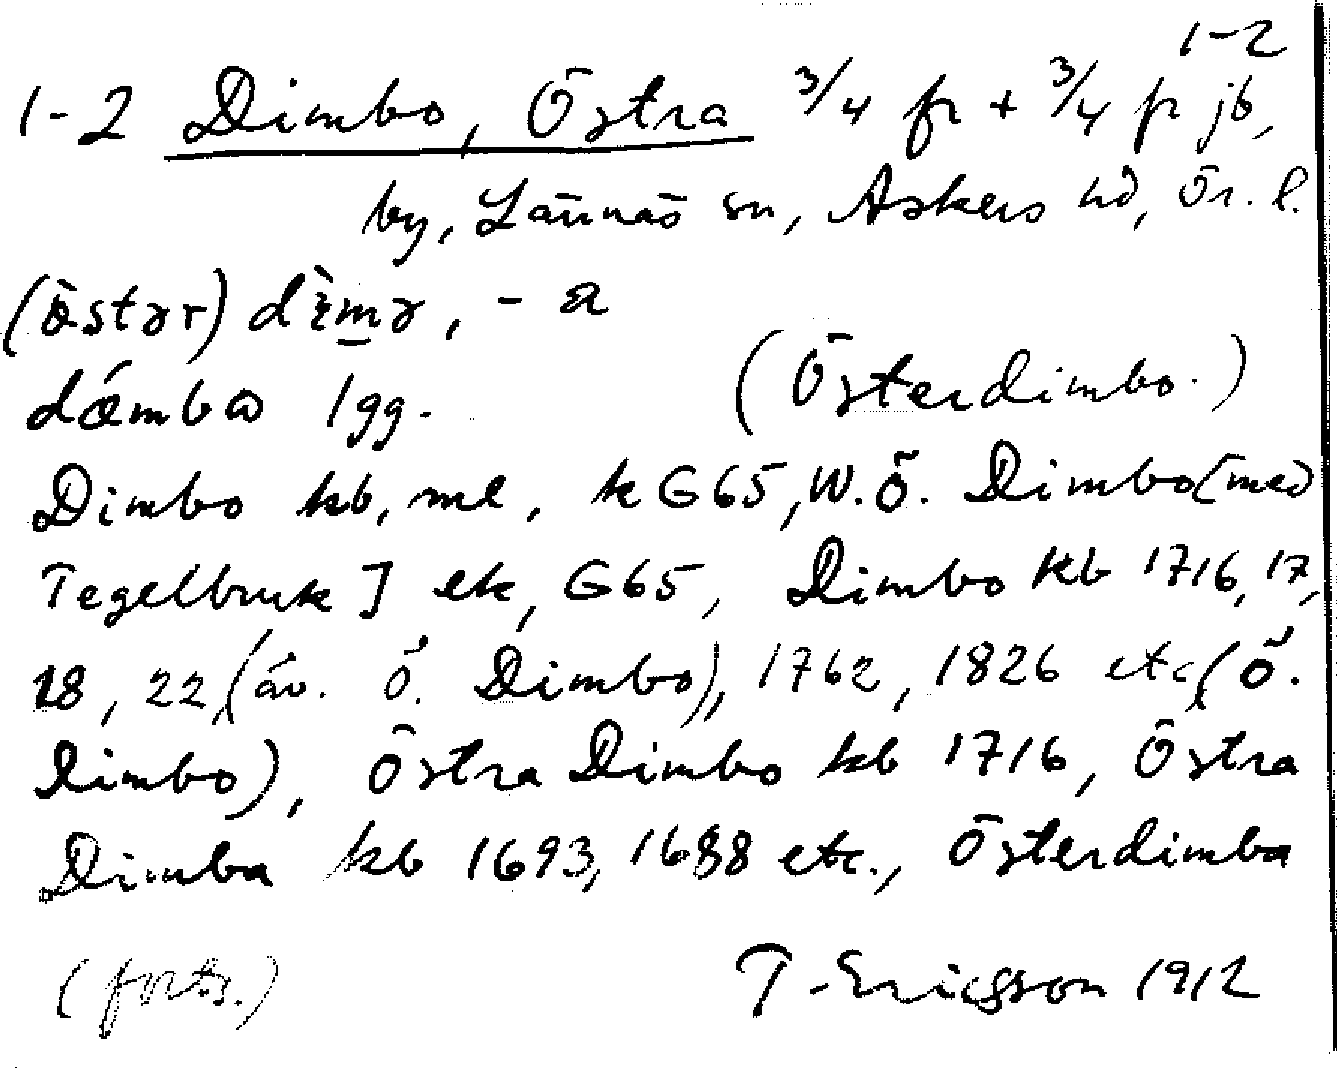 1-2
1-2 Dimbo, Östra 3/4 fr + 3/4 fr jb,
by, Lännäs sn, Askers hd, Ör. l.
(östər) dìmə, - a
dǽmbɷ lgg. (Österdimbo.)
Dimbo kb, ml, k G65, W.Ö. Dimbo [med
Tegelbruk] ek, G65, Dimbo kb 1716, 17,
18, 22, (äv. Ö. Dimbo), 1762, 1826 etc, (Ö.
Dimbo), Östra Dimbo kb 1716, Östra
Dimba kb 1693, 1688 etc., Österdimba
(forts.) T. Ericsson 1912